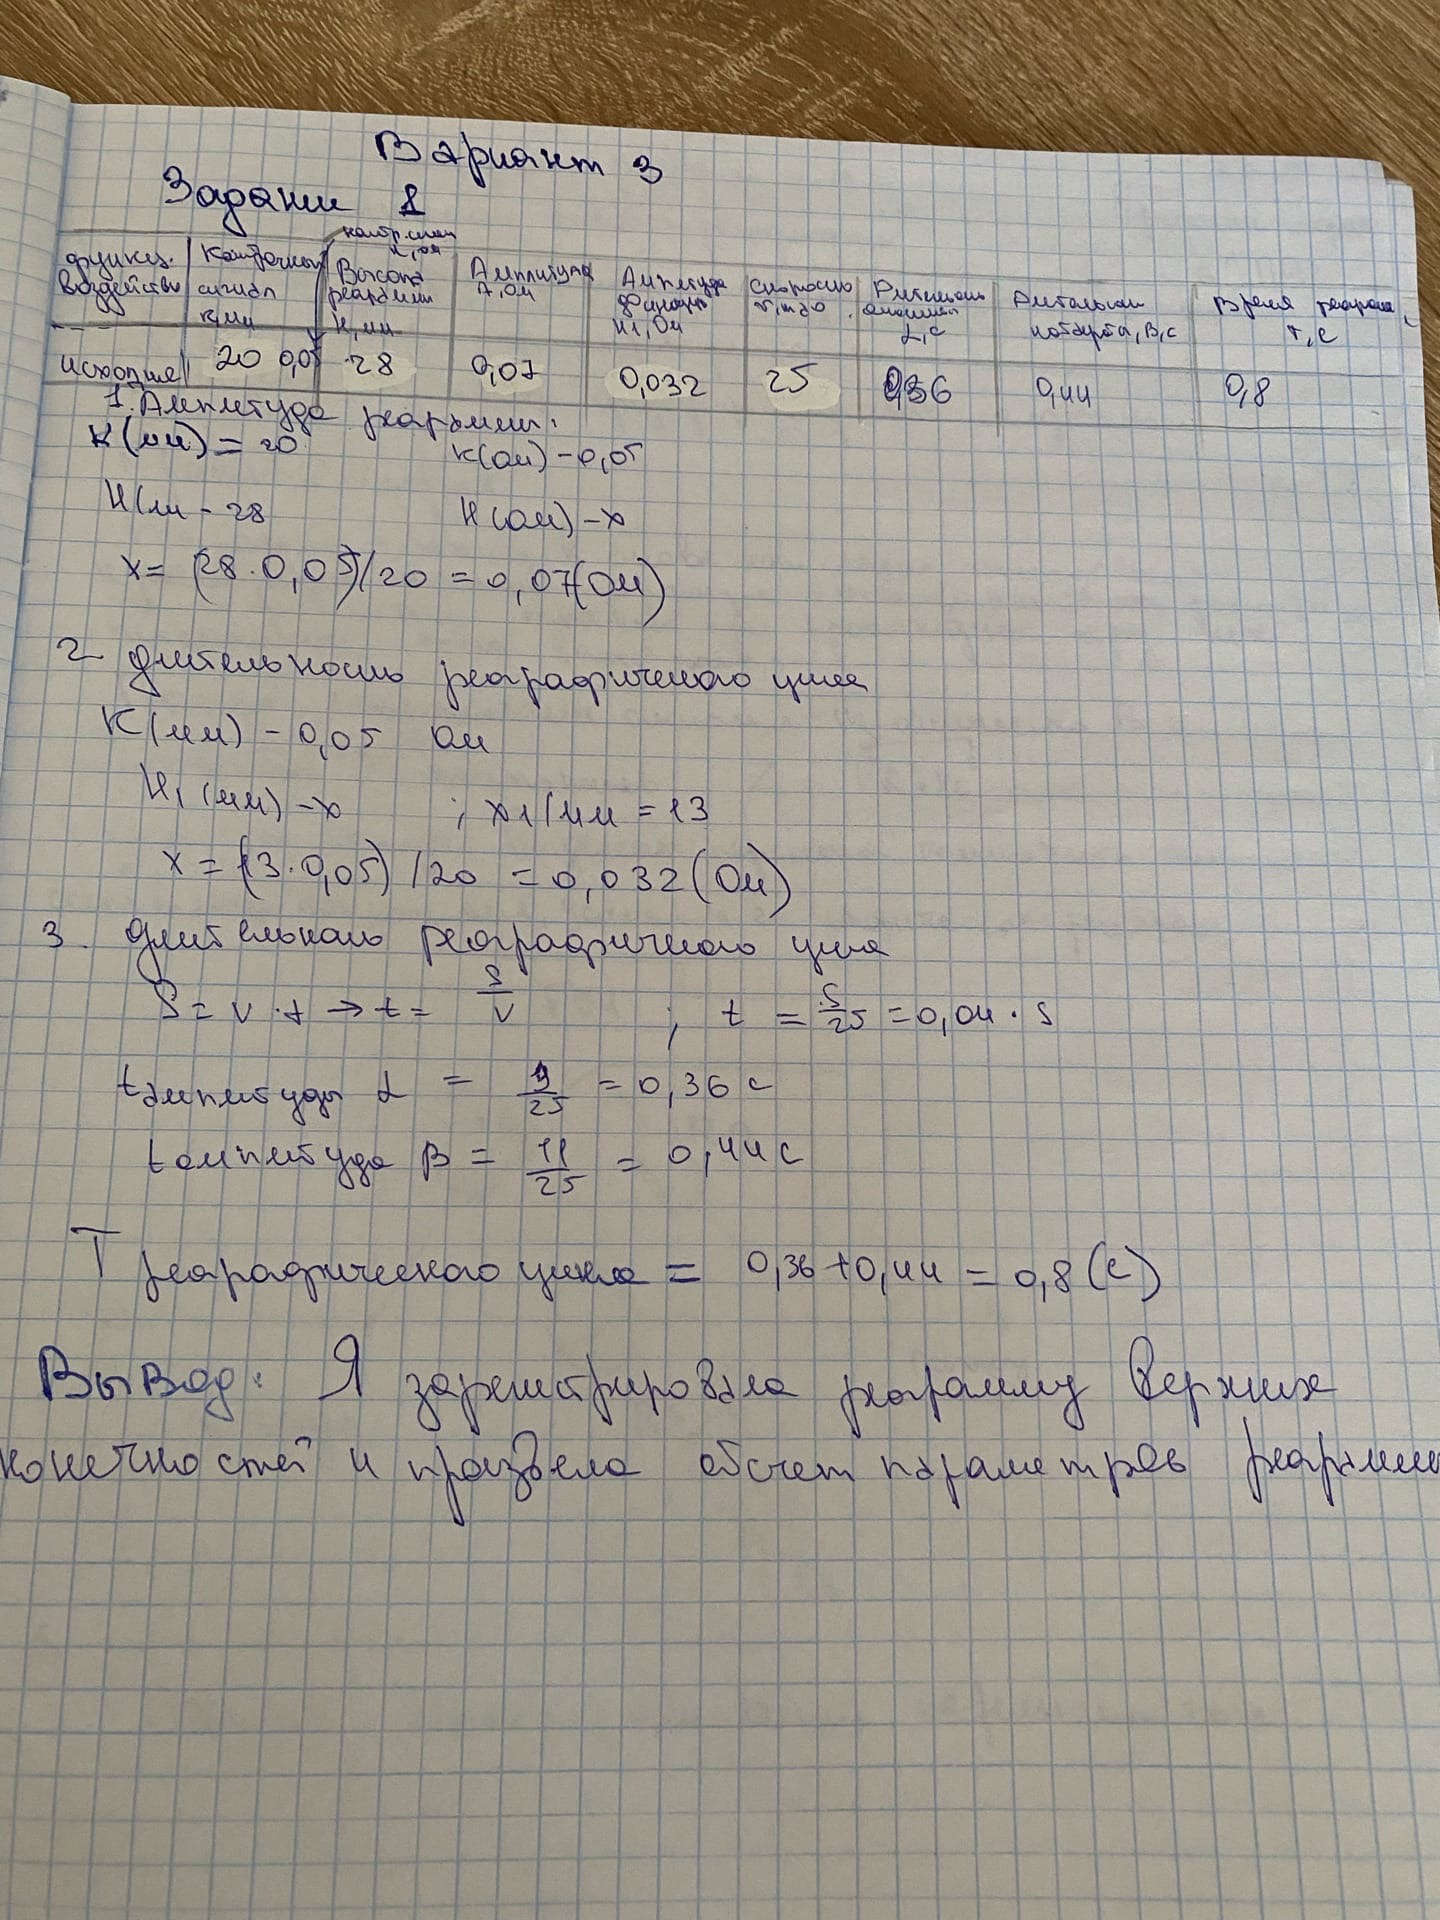 Вариант 3
Задание 1
функц. воздейств. ---- Калибровочный сигнал К,мм контр.сигн к,ом Высота реограммы Н,мм Амплитуда А,Ом Амплитуда H1,Ом скорость
В,с Время Т,С
исходные 20 0,05 28 0,07 0,032 25 0,36 0,44 0,8
1. Амплитуда реограммы:
К(мм) = 20 К(Ом) - 0,05
Н(мм - 28 Н(Ом) - х
х = (28 · 0,05)/20 = 0,07(Ом)
2 длительность реографического цикла
К(мм) - 0,05 Ом
Н1 (мм) - х ; х1(мм = 13
х = (13 · 0,05) /20 = 0,032 (Ом)
3. длительность реографического цикла
S = v · t → t = S/v ; t = S/25 = 0,04 · S
t амплитуды α = 9/25 = 0,36 с
t амплитуда β = 11/25 = 0,44 с
T реографического цикла = 0,36 + 0,44 = 0,8 (с)
Вывод: Я зарегистрировала реограмму верхних
конечностей и произвела обсчет параметров реограммы